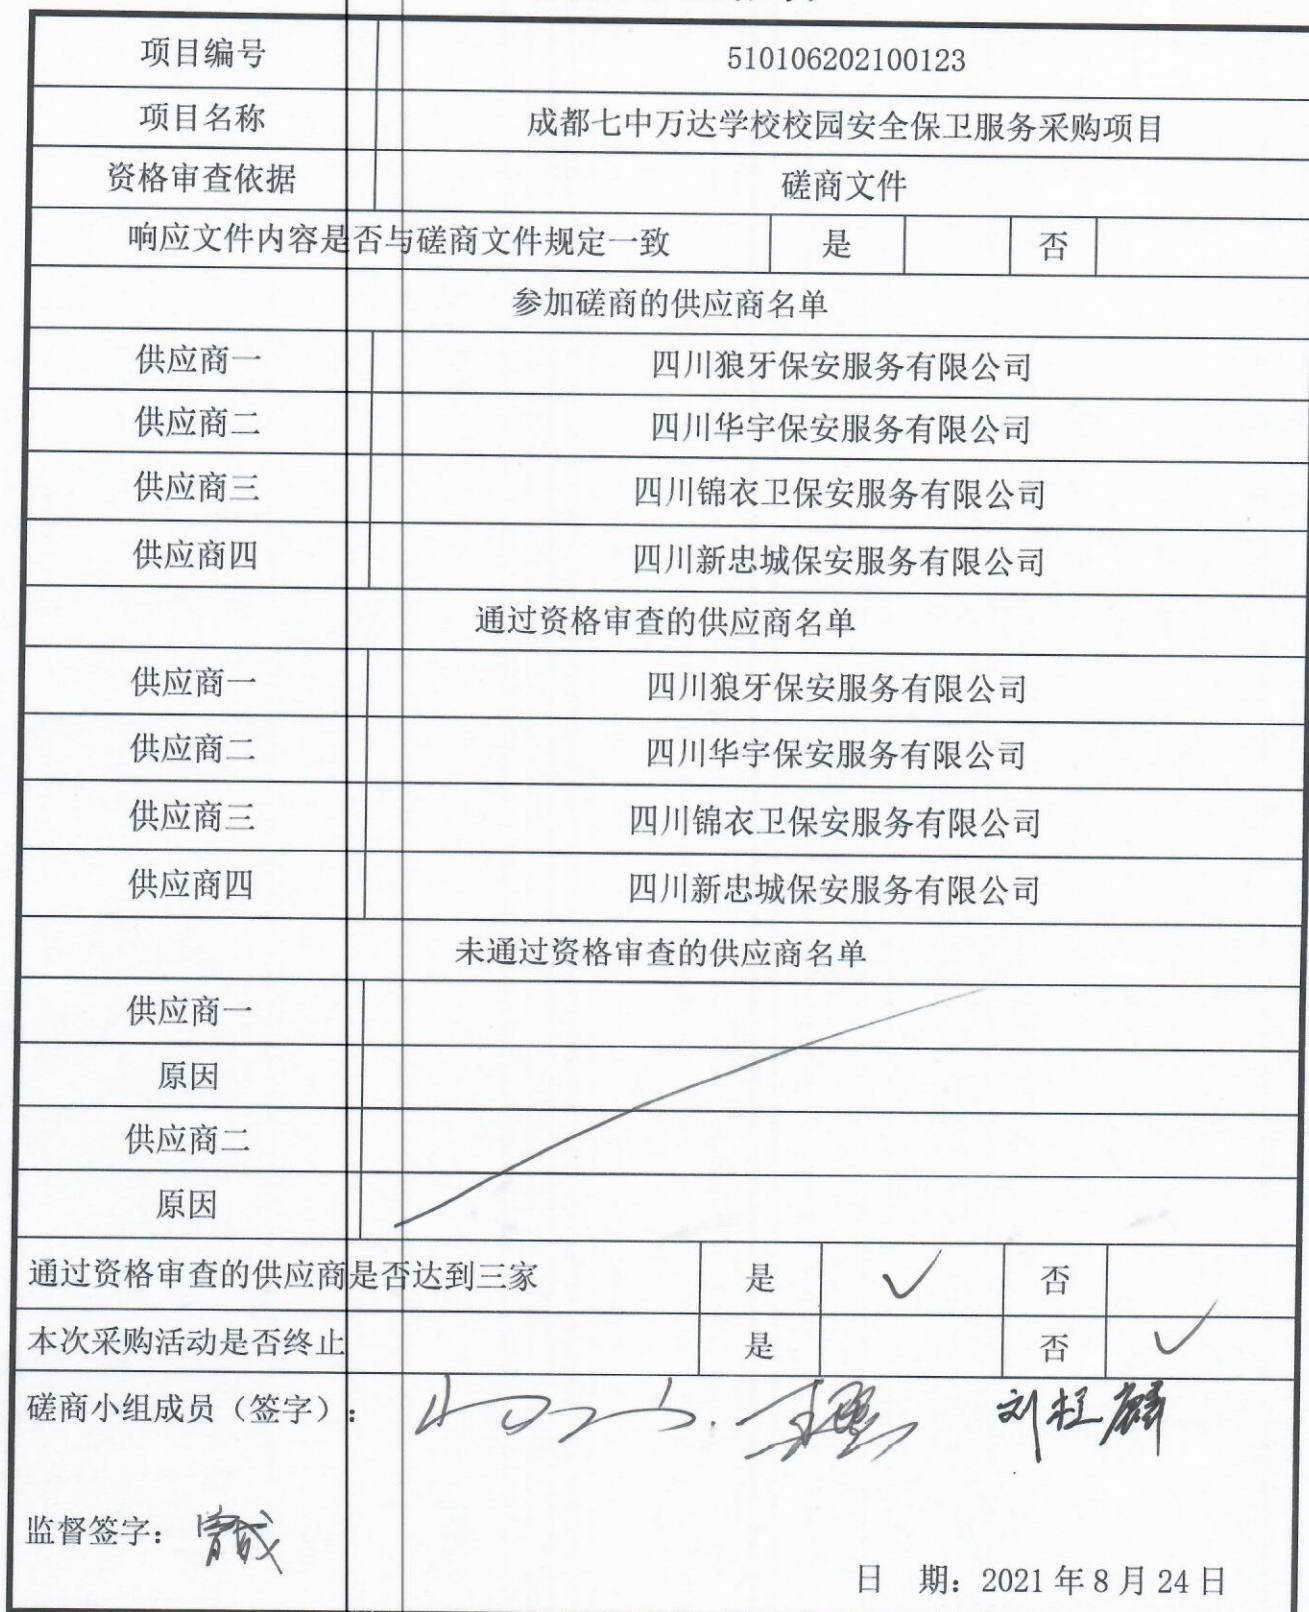 项目编号 510106202100123
项目名称 成都七中万达学校校园安全保卫服务采购项目
资格审查依据 磋商文件
响应文件内容是否与磋商文件规定一致 是 否
参加磋商的供应商名单
供应商一 四川狼牙保安服务有限公司
供应商二 四川华宇保安服务有限公司
供应商三 四川锦衣卫保安服务有限公司
供应商四 四川新忠城保安服务有限公司
通过资格审查的供应商名单
供应商一 四川狼牙保安服务有限公司
供应商二 四川华宇保安服务有限公司
供应商三 四川锦衣卫保安服务有限公司
供应商四 四川新忠城保安服务有限公司
未通过资格审查的供应商名单
供应商一
原因
供应商二
原因
通过资格审查的供应商是否达到三家 是 ✓ 否
本次采购活动是否终止 是 否 ✓
磋商小组成员（签字）：
监督签字：
日 期：2021年8月24日